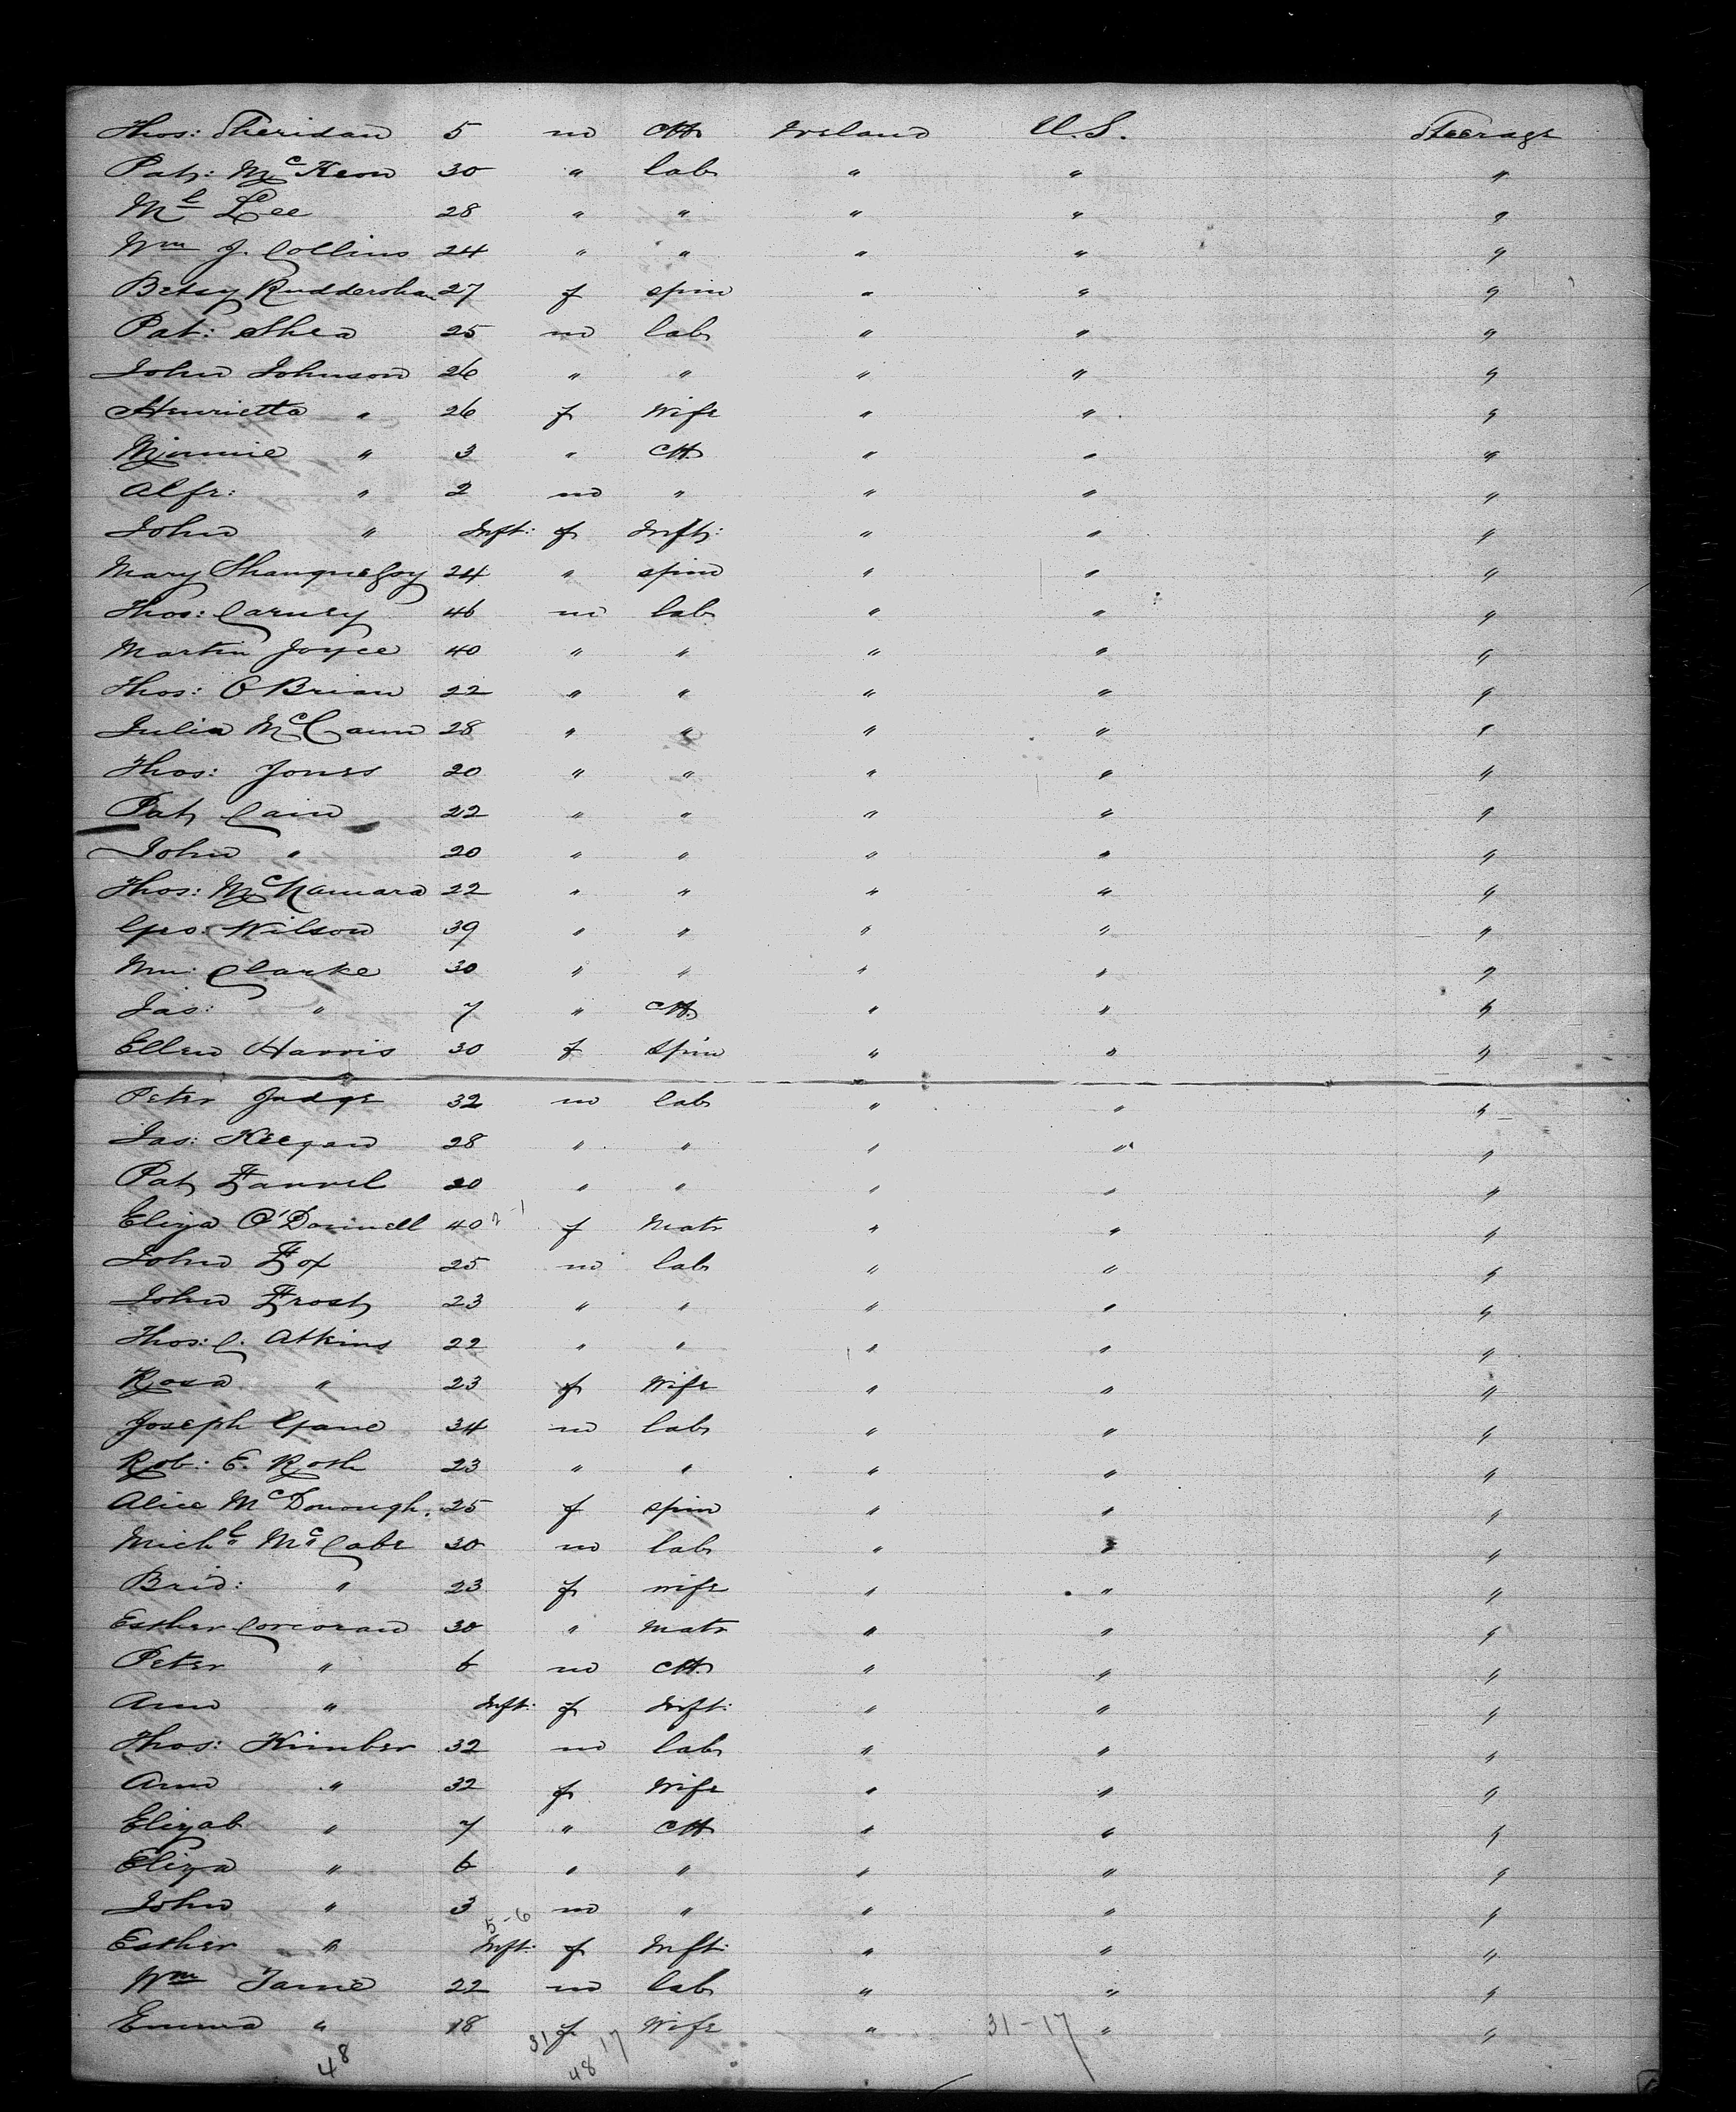 Thos: Sheridan 5 m Ch Ireland U.S. Steerage
Pat: McKeon 30 " lab " " "
Ml Lee 28 " " " " "
Wm J. Collins 24 " " " " "
Betsy 27 f spin " " "
Pat: Shea 25 m lab " " "
John Johnson 26 " " " " "
Henrietta " 26 f Wife " " "
Minnie " 3 " Ch " " "
Alfr: " 2 m " " " "
John " Inft: f Inft: " " "
Mary 24 " spin " " "
Thos: Carney 46 m lab " " "
Martin Joyce 40 " " " " "
Thos: O Brian 22 " " " " "
Julia McCann 28 " " " " "
Thos: Jones 20 " " " " "
Pat Cain 22 " " " " "
John " 20 " " " " "
Thos: McNamara 22 " " " " "
Geo: Wilson 39 " " " " "
Wm: Clarke 30 " " " " "
Jas: " 7 " Ch " " "
Ellen Harris 30 f Spin " " "
Peter Judge 32 m lab " " "
Jas: Keegan 28 " " " " "
Pat Farrel 20 " " " " "
Eliza O'Donnell 40 f Matr " " "
John Fox 25 m lab " " "
John Frost 23 " " " " "
Thos: C. Atkins 22 " " " " "
Rosa " 23 f Wife " " "
Joseph Gane 34 m lab " " "
Rob: E. Rosh 23 " " " " "
Alice McDonough. 25 f spin " " "
Michl McCabe 30 m lab " " "
Brid: " 23 f wife " " "
Esther Corcoran 30 " Matr " " "
Peter " 6 m Ch " " "
Ann " Inft: f Inft: " " "
Thos: Kimber 32 m lab " " "
Ann " 32 f Wife " " "
Elizab " 7 " Ch " " "
Eliza " 6 " " " " "
John " 3 m " " " "
5-6
Esther " Inft: f Inft: " " "
Wm Tame 22 m lab " " "
Emma " 18 f Wife " 31-17 " "
31 17
48 48